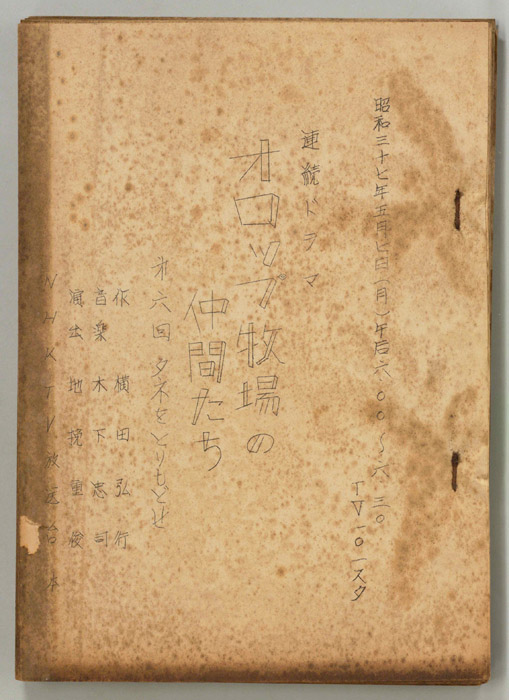 昭和三十七年五月七日(月)午后六.〇〇〜六.三〇
TV一〇一スタ
連続ドラマ
オロップ牧場の
仲間たち
才六回 タネをとりもどせ
作 横田弘行
音楽 木下忠司
演出 地挽重俊
NHKTV放送台本